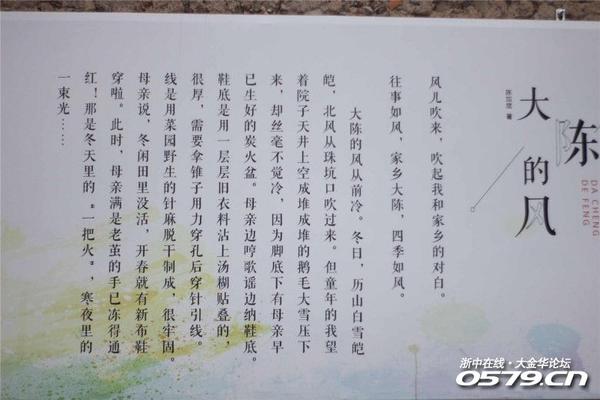 大陈的风
DA CHENG
DE FENG
著
风儿吹来，吹起我和家乡的对白。
往事如风，家乡大陈，四季如风。
大陈的风从前冷。冬日，历山白雪皑
皑，北风从珠坑口吹过来。但童年的我望
着院子天井上空成堆成堆的鹅毛大雪压下
来，却丝毫不觉冷，因为脚底下有母亲早
已生好的炭火盆。母亲边哼歌谣边纳鞋底。
鞋底是用一层层旧衣料沾上汤糊贴叠的，
很厚，需要拿锥子用力穿孔后穿针引线。
线是用菜园野生的针麻脱干制成，很牢固。
母亲说，冬闲田里没活，开春就有新布鞋
穿啦。此时，母亲满是老茧的手已冻得通
红！那是冬天里的“一把火”，寒夜里的
一束光……
浙中在线·大金华论坛
0579.cn